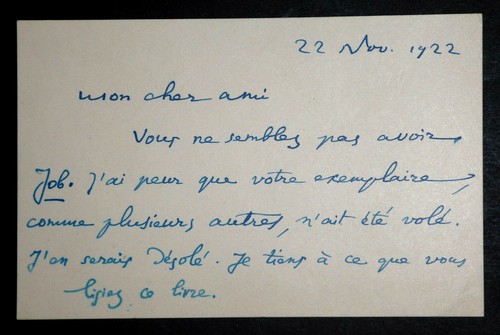 22 Nov. 1922
Mon cher ami
Vous ne semblez pas avoir
Job. J'ai peur que votre exemplaire,
comme plusieurs autres, n'ait été volé.
J'en serais Désolé. Je tiens à ce que vous
lisiez ce livre.